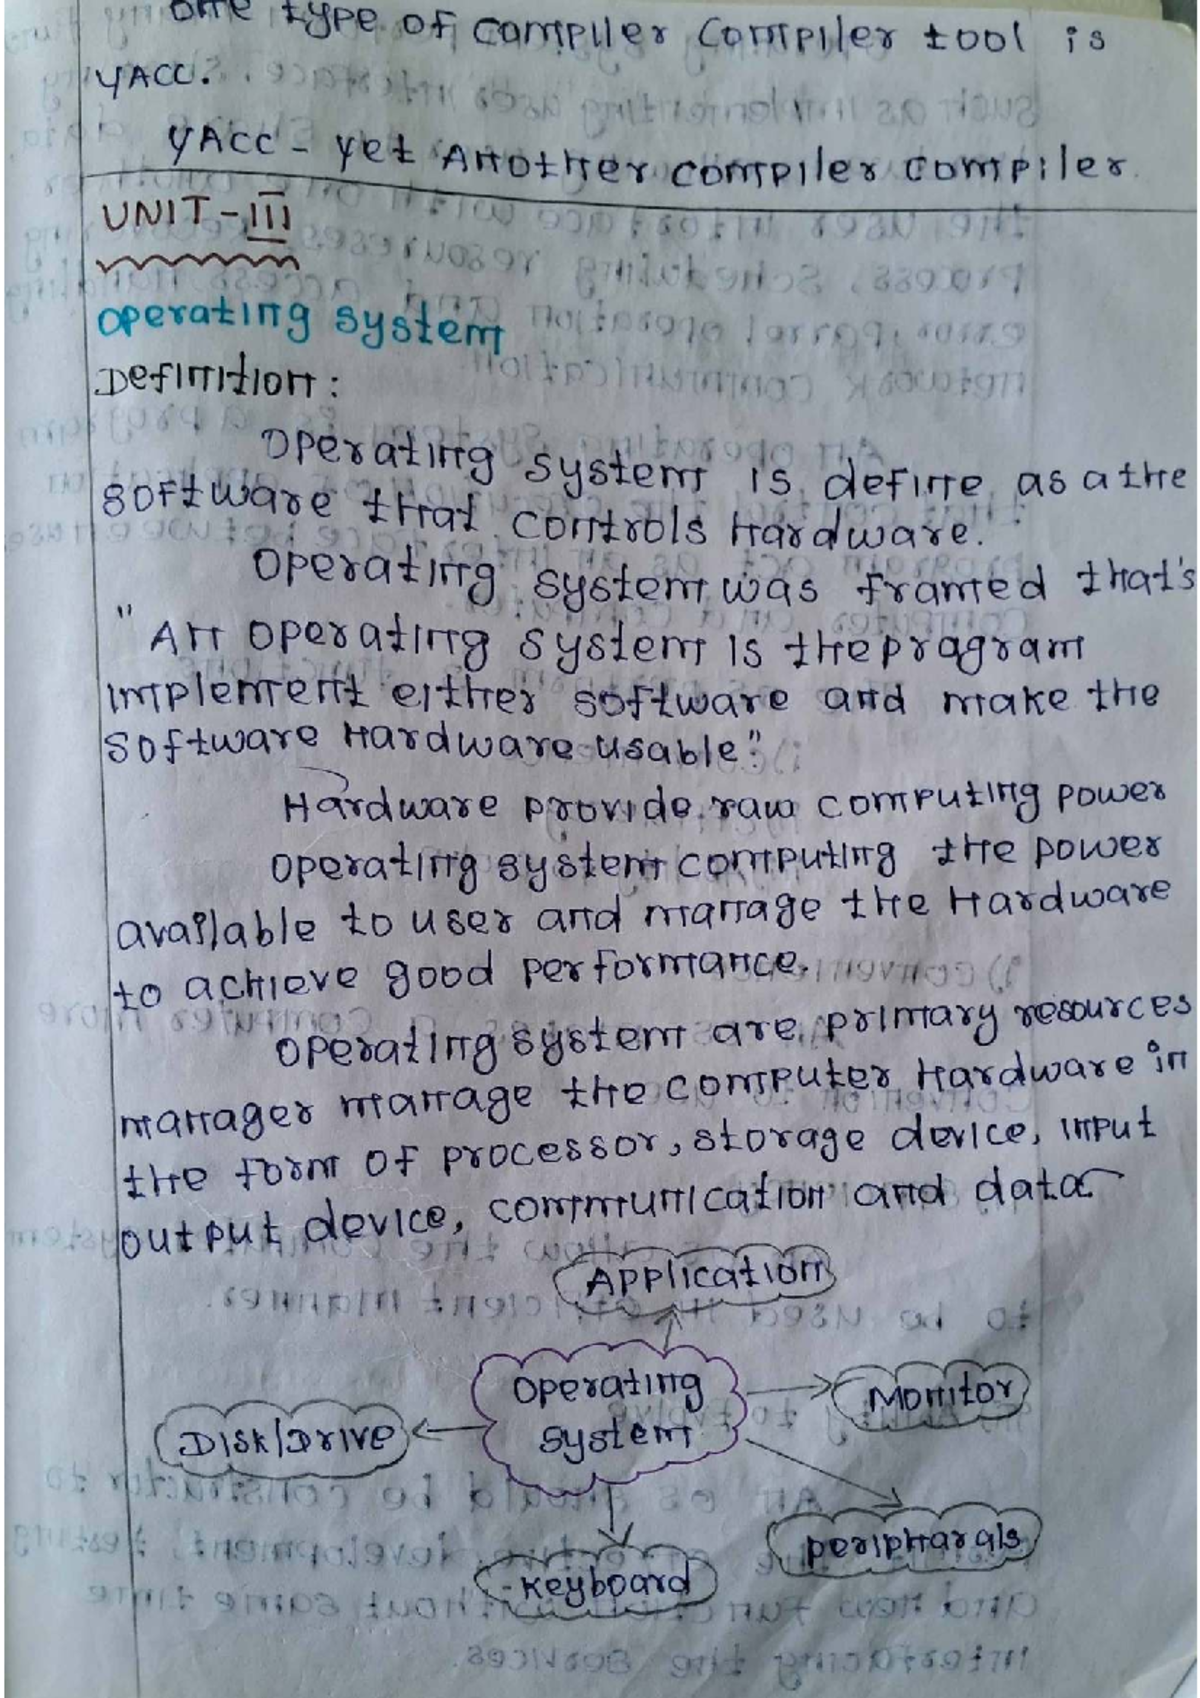 one type of compiler compiler tool is
YACC.
YACC - Yet Another compiler compiler.
UNIT-III
operating system
Definition:
Operating system is define as a the
software that controls Hardware.
Operating system was framed that's
"An operating system is the program
implement either software and make the
software Hardware usable".
Hardware provide raw computing power
operating system computing the power
available to user and manage the Hardware
to achieve good performance.
Operating system are primary resources
manager manage the computer Hardware in
the form of processor, storage device, input
output device, communication and data
Application
Operating
system
Monitor
Disk/Drive
peripharals
keyboard